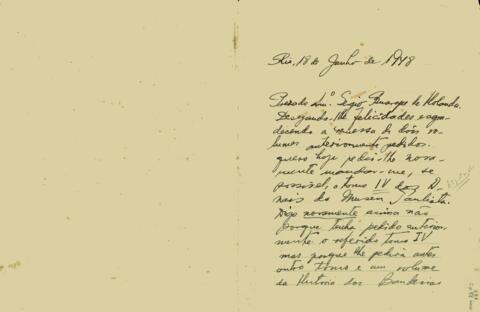 Rio, 18 de Junho de 1948
Prezado Snr. Sergio Buarque de Holanda.
Desejando-lhe felicidades e agra-
decendo a remessa de dois vo-
lumes anteriormente pedidos,
quero hoje pedir-lhe nova-
mente mandar-me, se
possivel, o tomo IV dos A-
nais do Museu Paulista.
Digo novamente acima não
porque tenha pedido anterior-
mente o referido tomo IV
mas porque lhe pedira antes
outro tomo e um volume
da Historia das Bandeiras